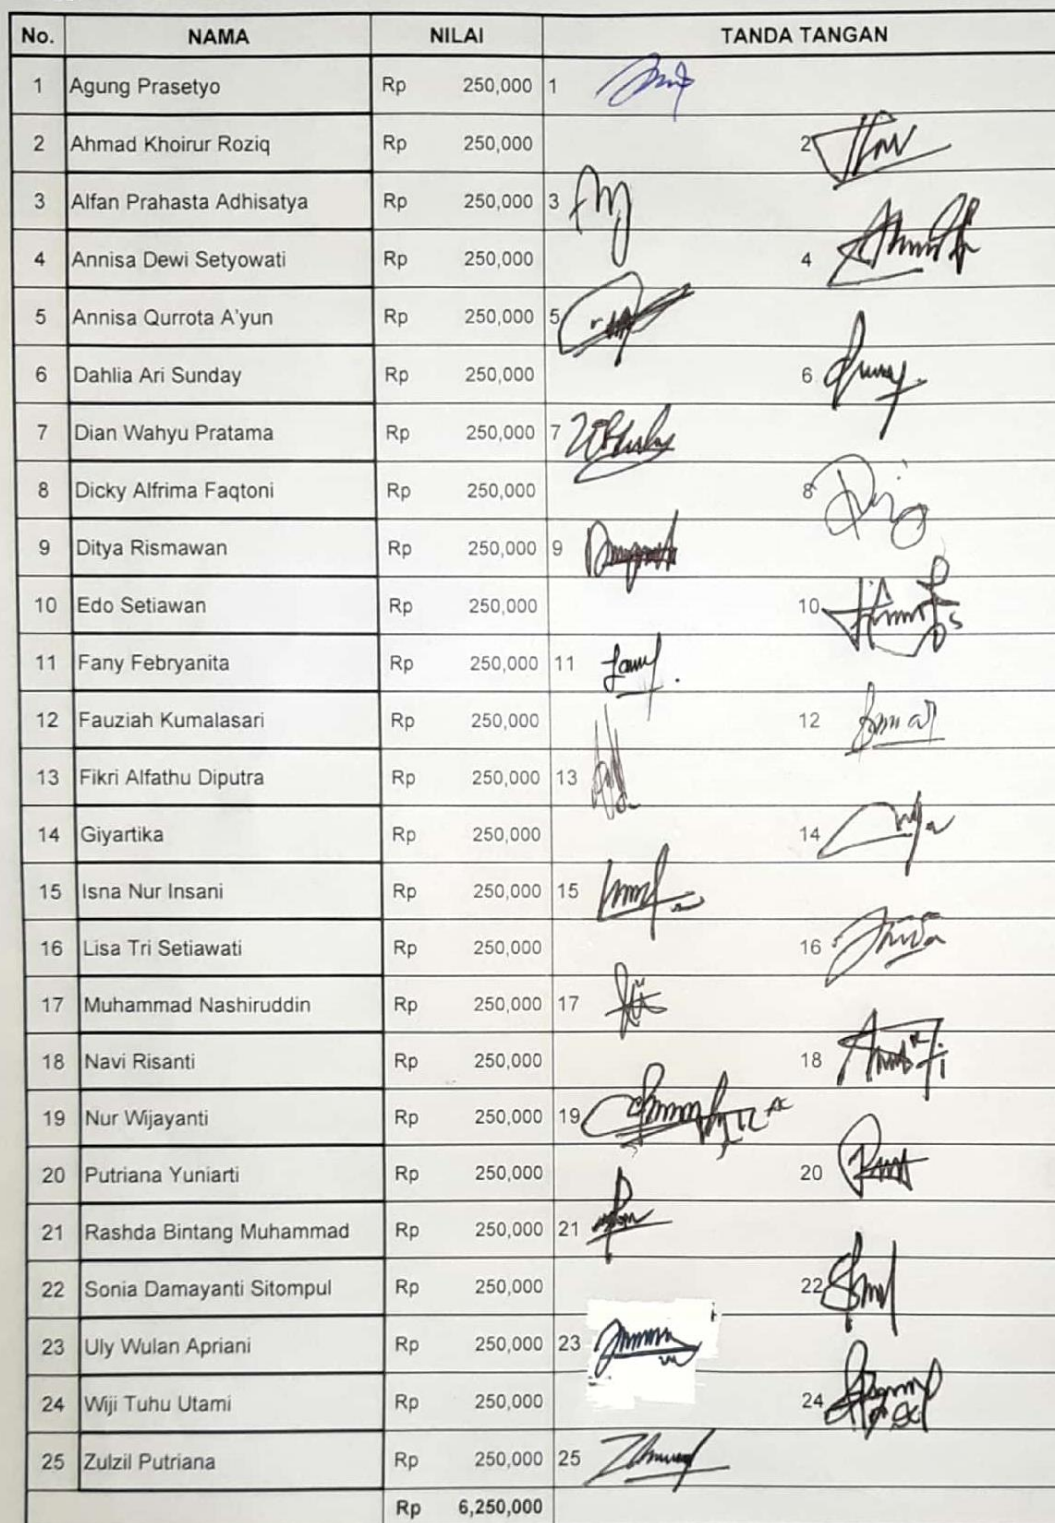 No. NAMA NILAI TANDA TANGAN
1 Agung Prasetyo Rp 250,000 1
2 Ahmad Khoirur Roziq Rp 250,000 2
3 Alfan Prahasta Adhisatya Rp 250,000 3
4 Annisa Dewi Setyowati Rp 250,000 4
5 Annisa Qurrota A'yun Rp 250,000 5
6 Dahlia Ari Sunday Rp 250,000 6
7 Dian Wahyu Pratama Rp 250,000 7
8 Dicky Alfrima Faqtoni Rp 250,000 8
9 Ditya Rismawan Rp 250,000 9
10 Edo Setiawan Rp 250,000 10
11 Fany Febryanita Rp 250,000 11
12 Fauziah Kumalasari Rp 250,000 12
13 Fikri Alfathu Diputra Rp 250,000 13
14 Giyartika Rp 250,000 14
15 Isna Nur Insani Rp 250,000 15
16 Lisa Tri Setiawati Rp 250,000 16
17 Muhammad Nashiruddin Rp 250,000 17
18 Navi Risanti Rp 250,000 18
19 Nur Wijayanti Rp 250,000 19
20 Putriana Yuniarti Rp 250,000 20
21 Rashda Bintang Muhammad Rp 250,000 21
22 Sonia Damayanti Sitompul Rp 250,000 22
23 Uly Wulan Apriani Rp 250,000 23
24 Wiji Tuhu Utami Rp 250,000 24
25 Zulzil Putriana Rp 250,000 25
Rp 6,250,000